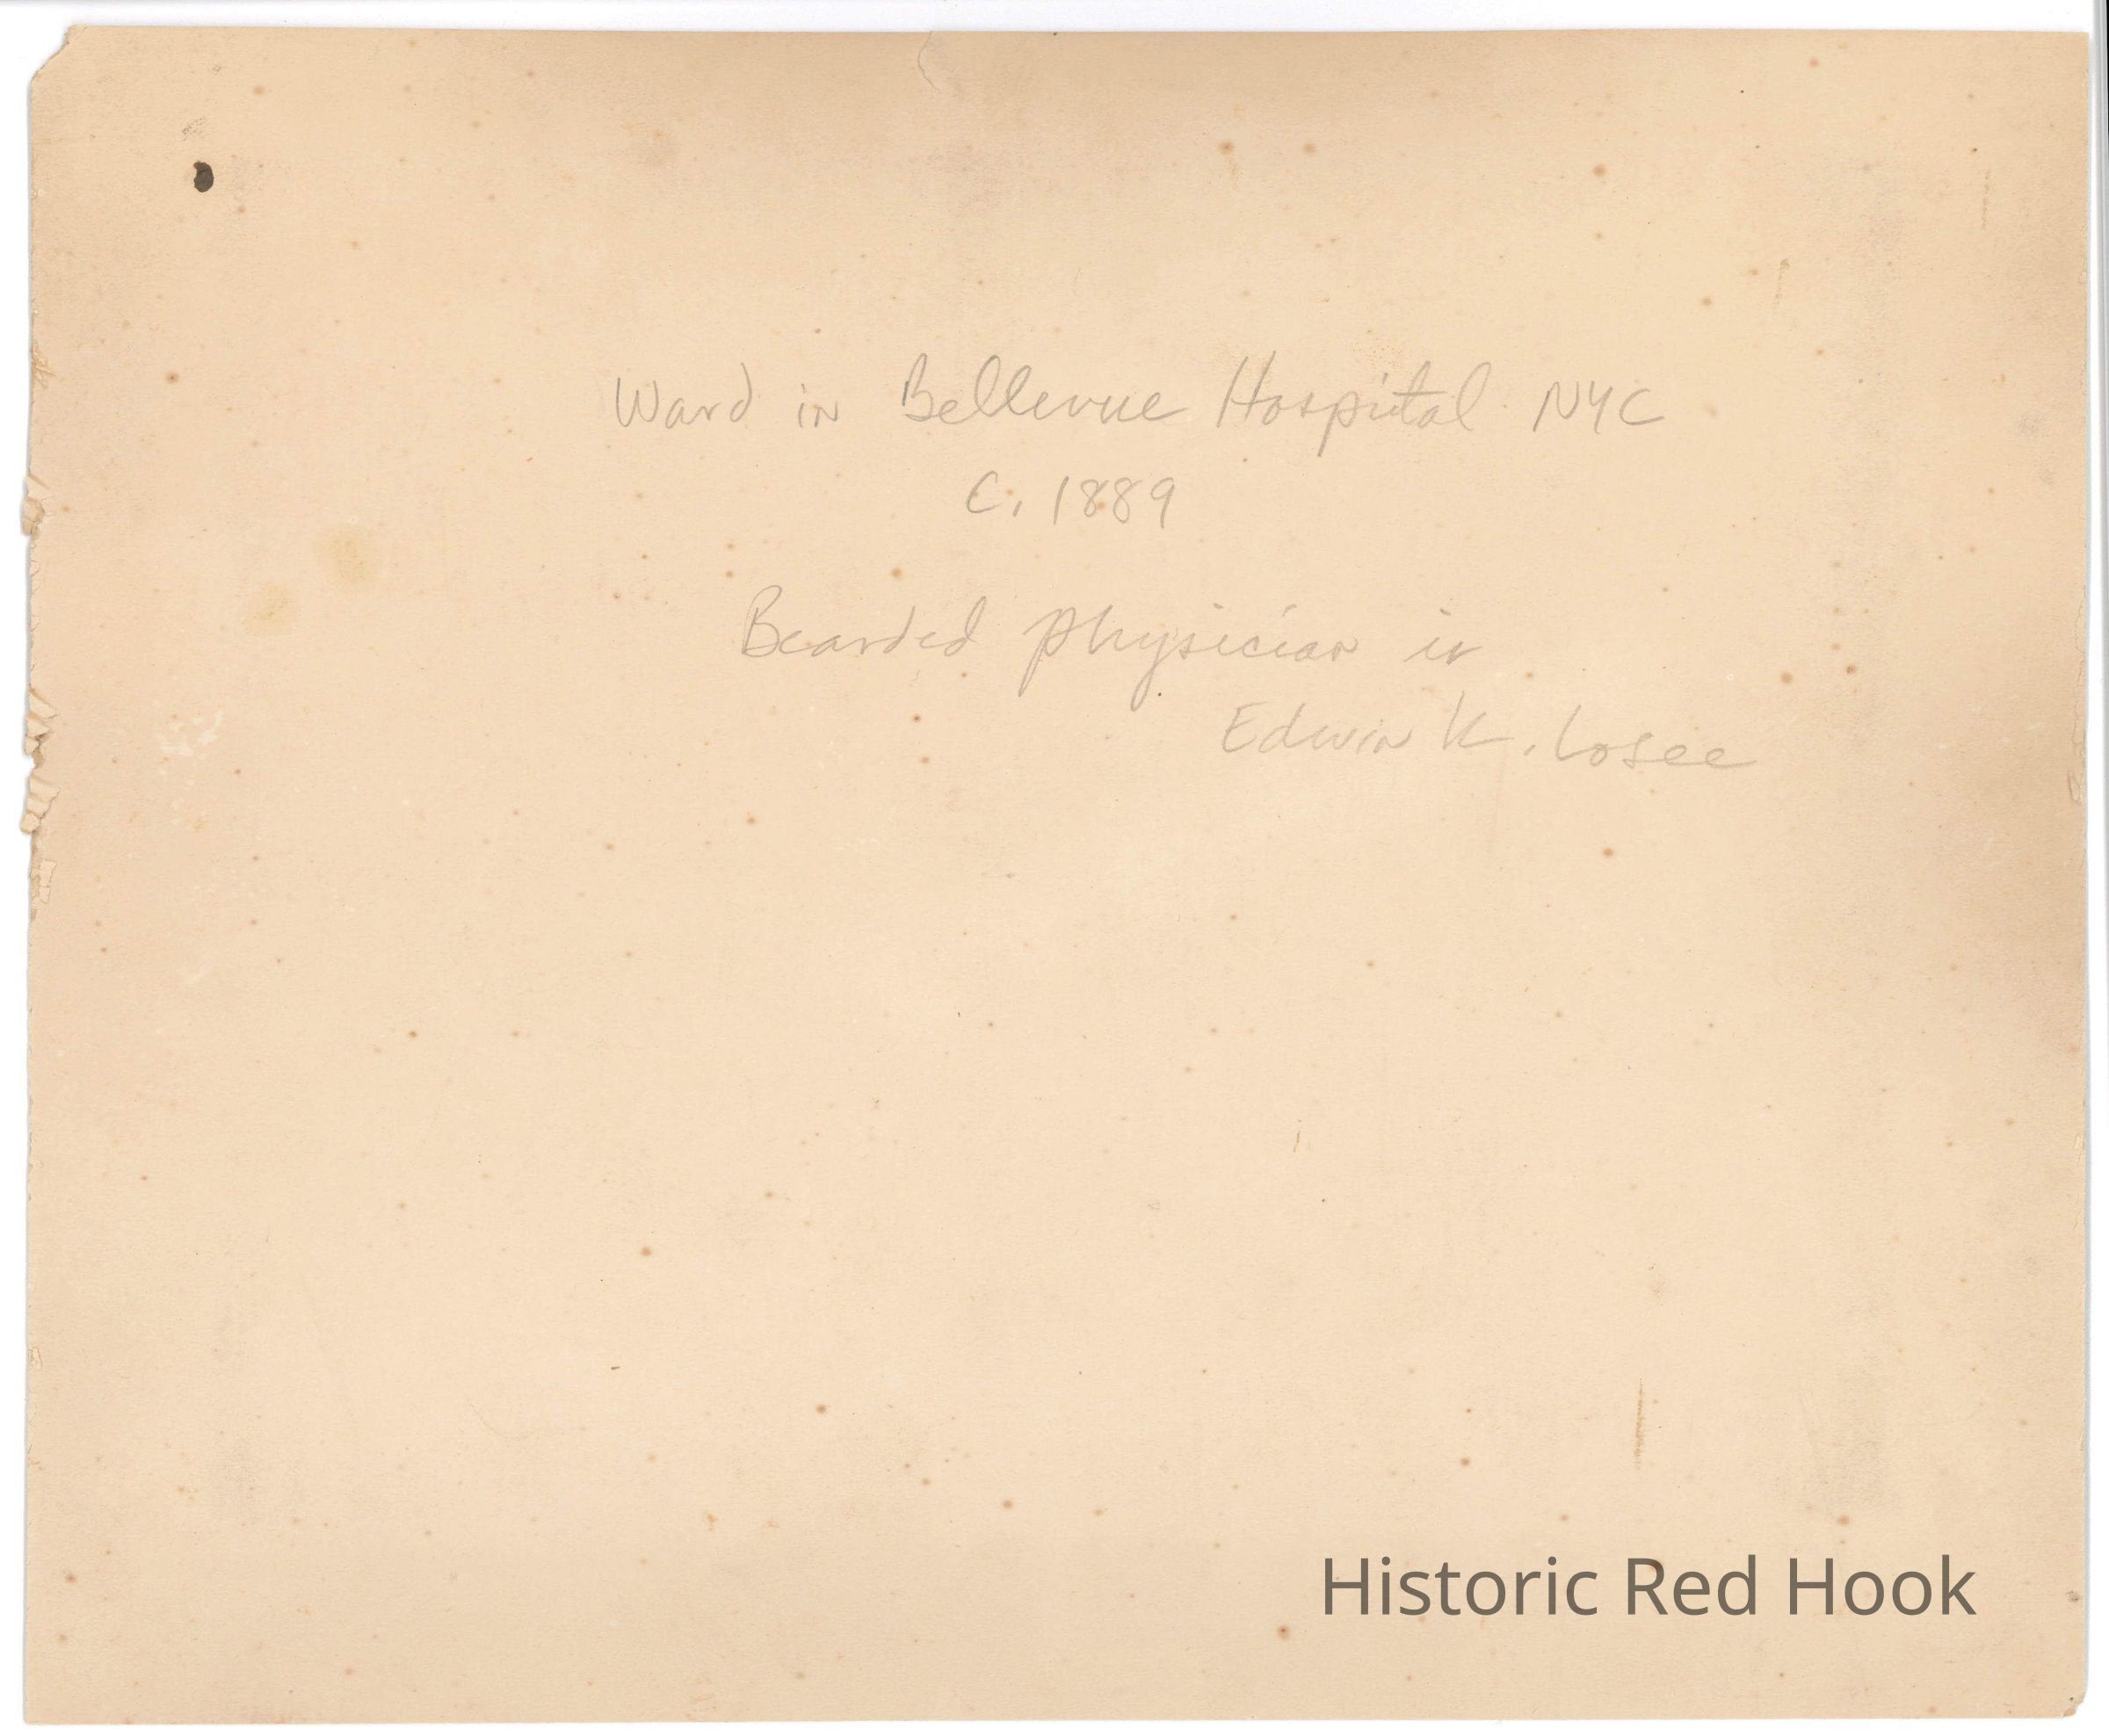 Ward in Bellevue Hospital NYC
C. 1889
Bearded physician is
Edwin K. Losee
Historic Red Hook